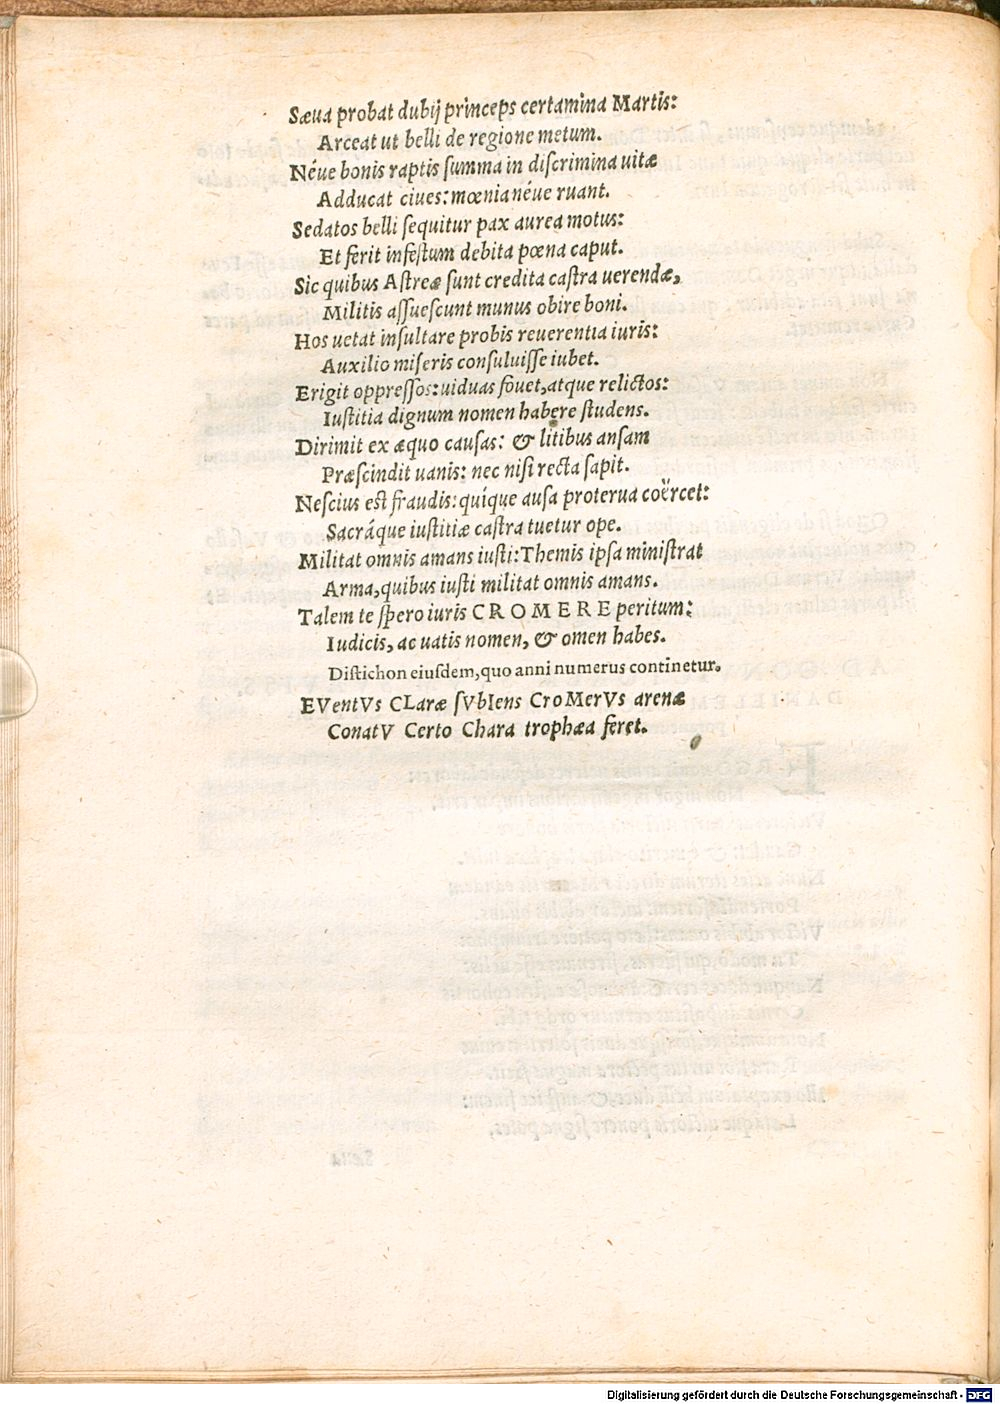 Sæua probat dubij princeps certamina Martis:
Arceat ut belli de regione metum.
Néue bonis raptis ſumma in diſcrimina uitæ
Adducat ciues: mœnia néue ruant.
Sedatos belli ſequitur pax aurea motus:
Et ferit infeſtum debita pœna caput.
Sic quibus Aſtreæ ſunt credita caſtra uerendæ,
Militis aſſueſcunt munus obire boni.
Hos uetat inſultare probis reuerentia iuris:
Auxilio miſeris conſuluiſſe iubet.
Erigit oppreſſos: uiduas fouet, atque relictos:
Iuſtitia dignum nomen habere ſtudens.
Dirimit ex æquo cauſas: & litibus anſam
Præſcindit uanis: nec niſi recta ſapit.
Neſcius eſt fraudis: quíque auſa proterua coërcet:
Sacráque iuſtitiæ caſtra tuetur ope.
Militat omnis amans iuſti: Themis ipſa miniſtrat
Arma, quibus iuſti militat omnis amans.
Talem te ſpero iuris CROMERE peritum:
Iudicis, ac uatis nomen, & omen habes.
Diſtichon eiuſdem, quo anni numerus continetur.
EVentVs CLaræ ſVbIens CroMerVs arenæ
ConatV Certo Chara trophæa feret.
Digitalisierung gefördert durch die Deutsche Forschungsgemeinschaft - DFG